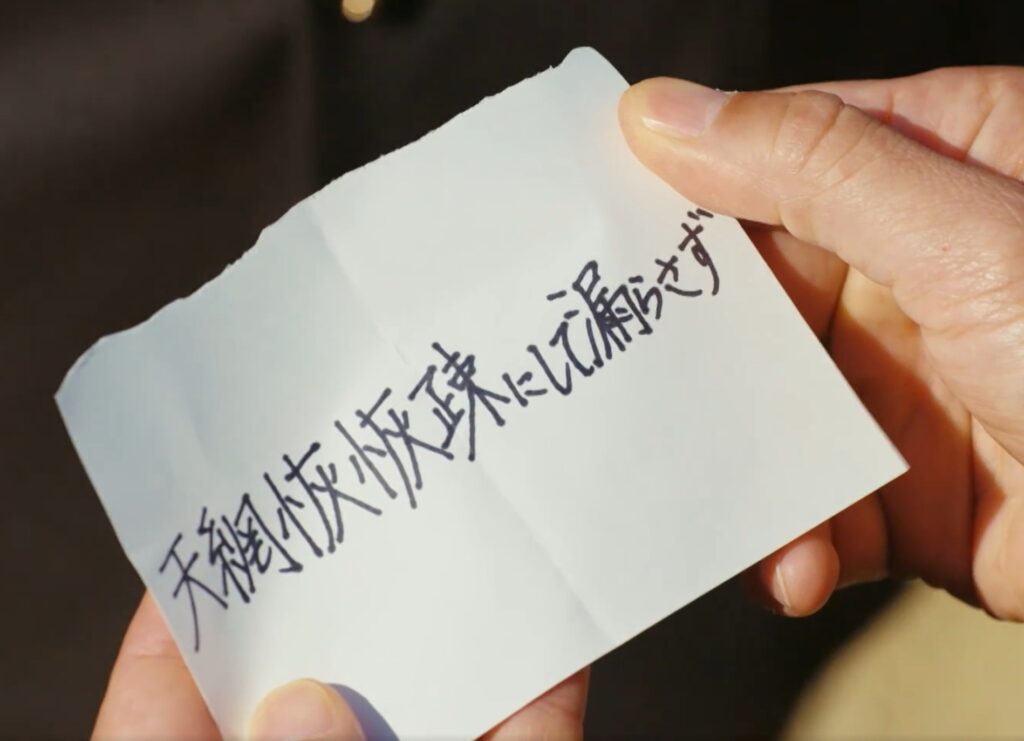 天網恢恢疎にして漏らさず